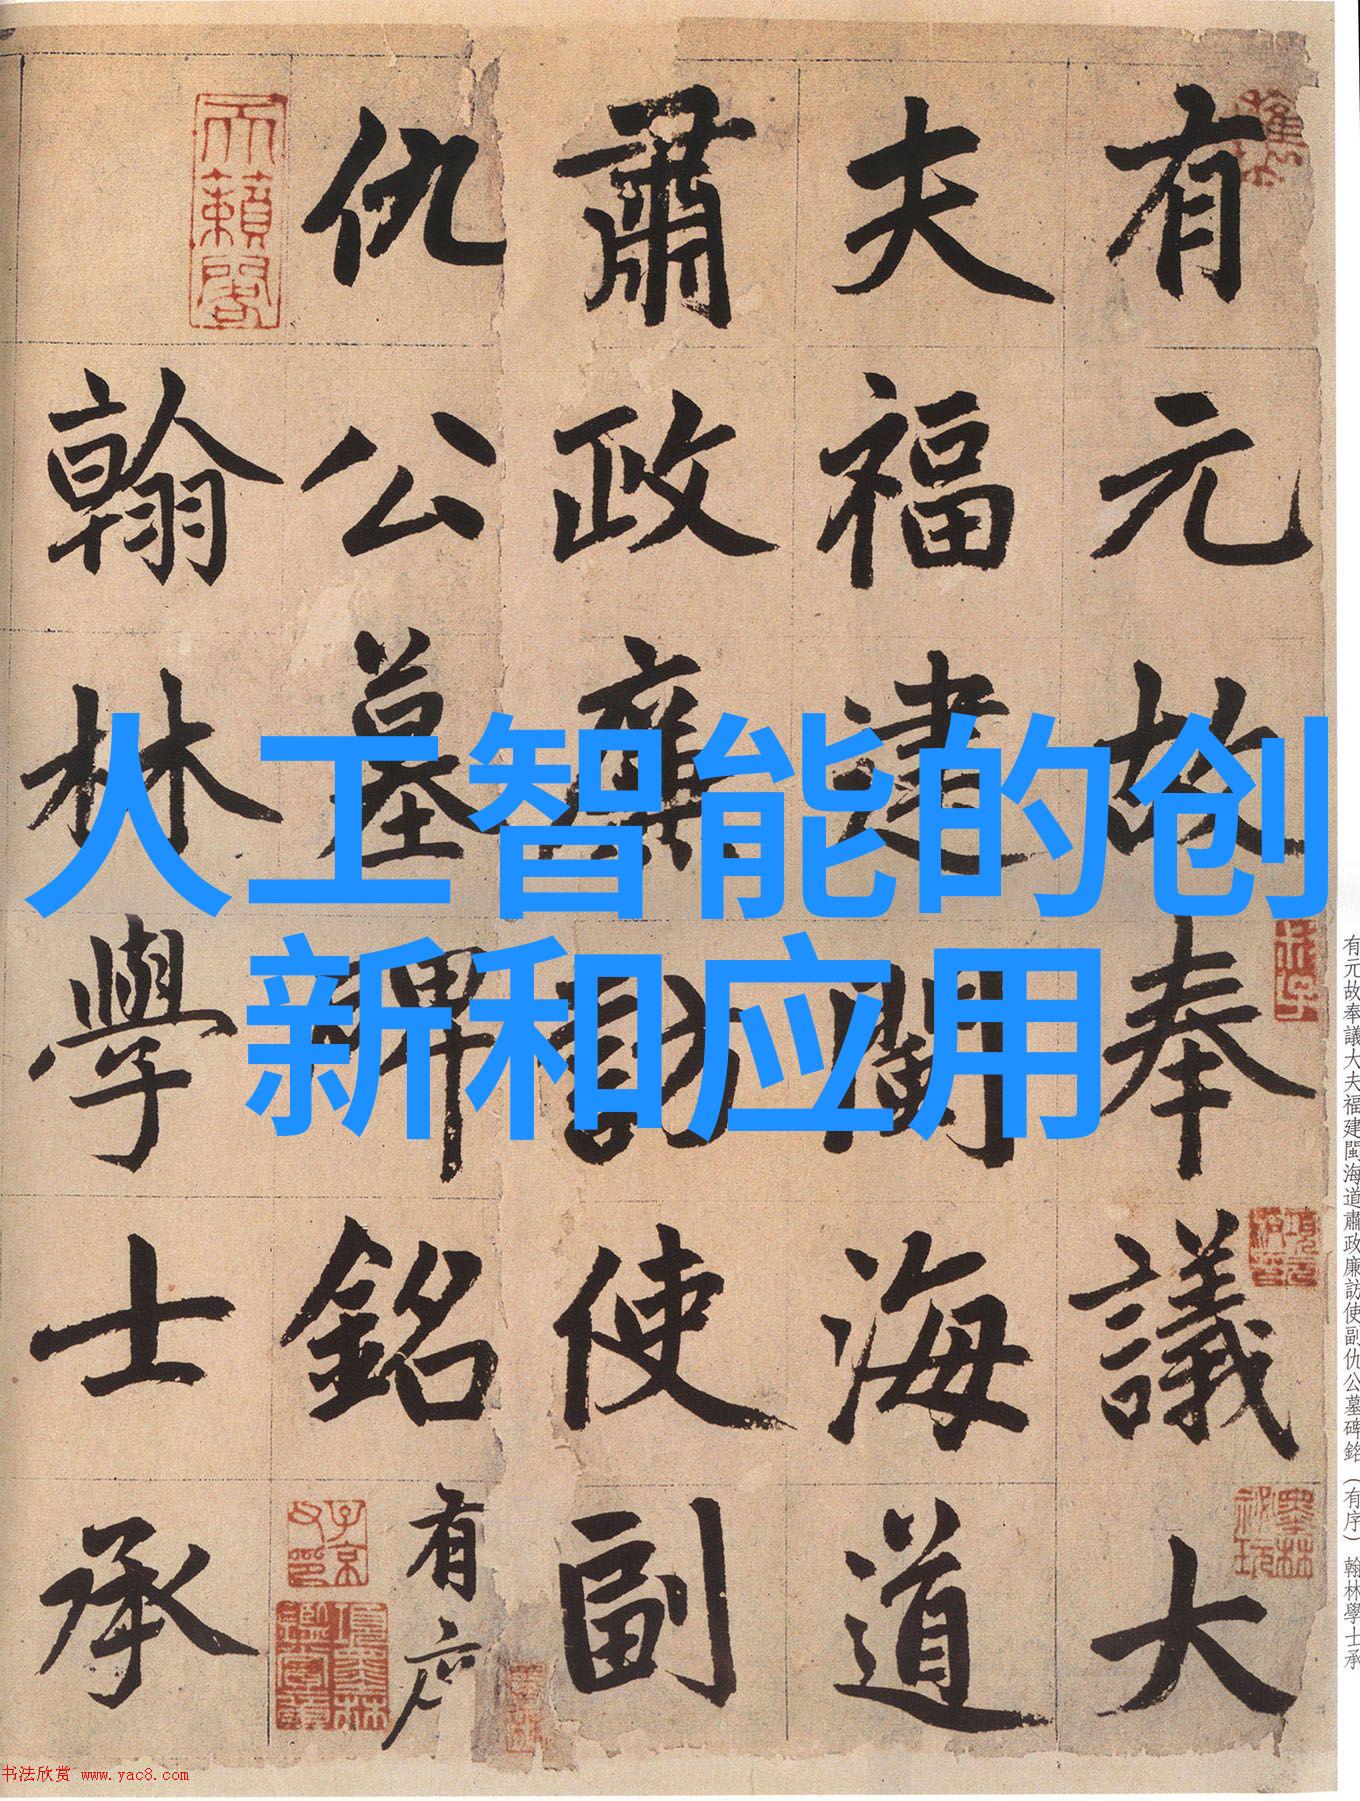 有元故奉議大
夫福建閩海道
肅政廉訪使副
仇公墓碑銘有序
翰林學士承
天籟閣
人工智能的创
新和应用
有元故奉議大夫福建閩海道肅政廉訪使副仇公墓碑銘（有序）翰林學士承
书法欣赏 www.yac8.com